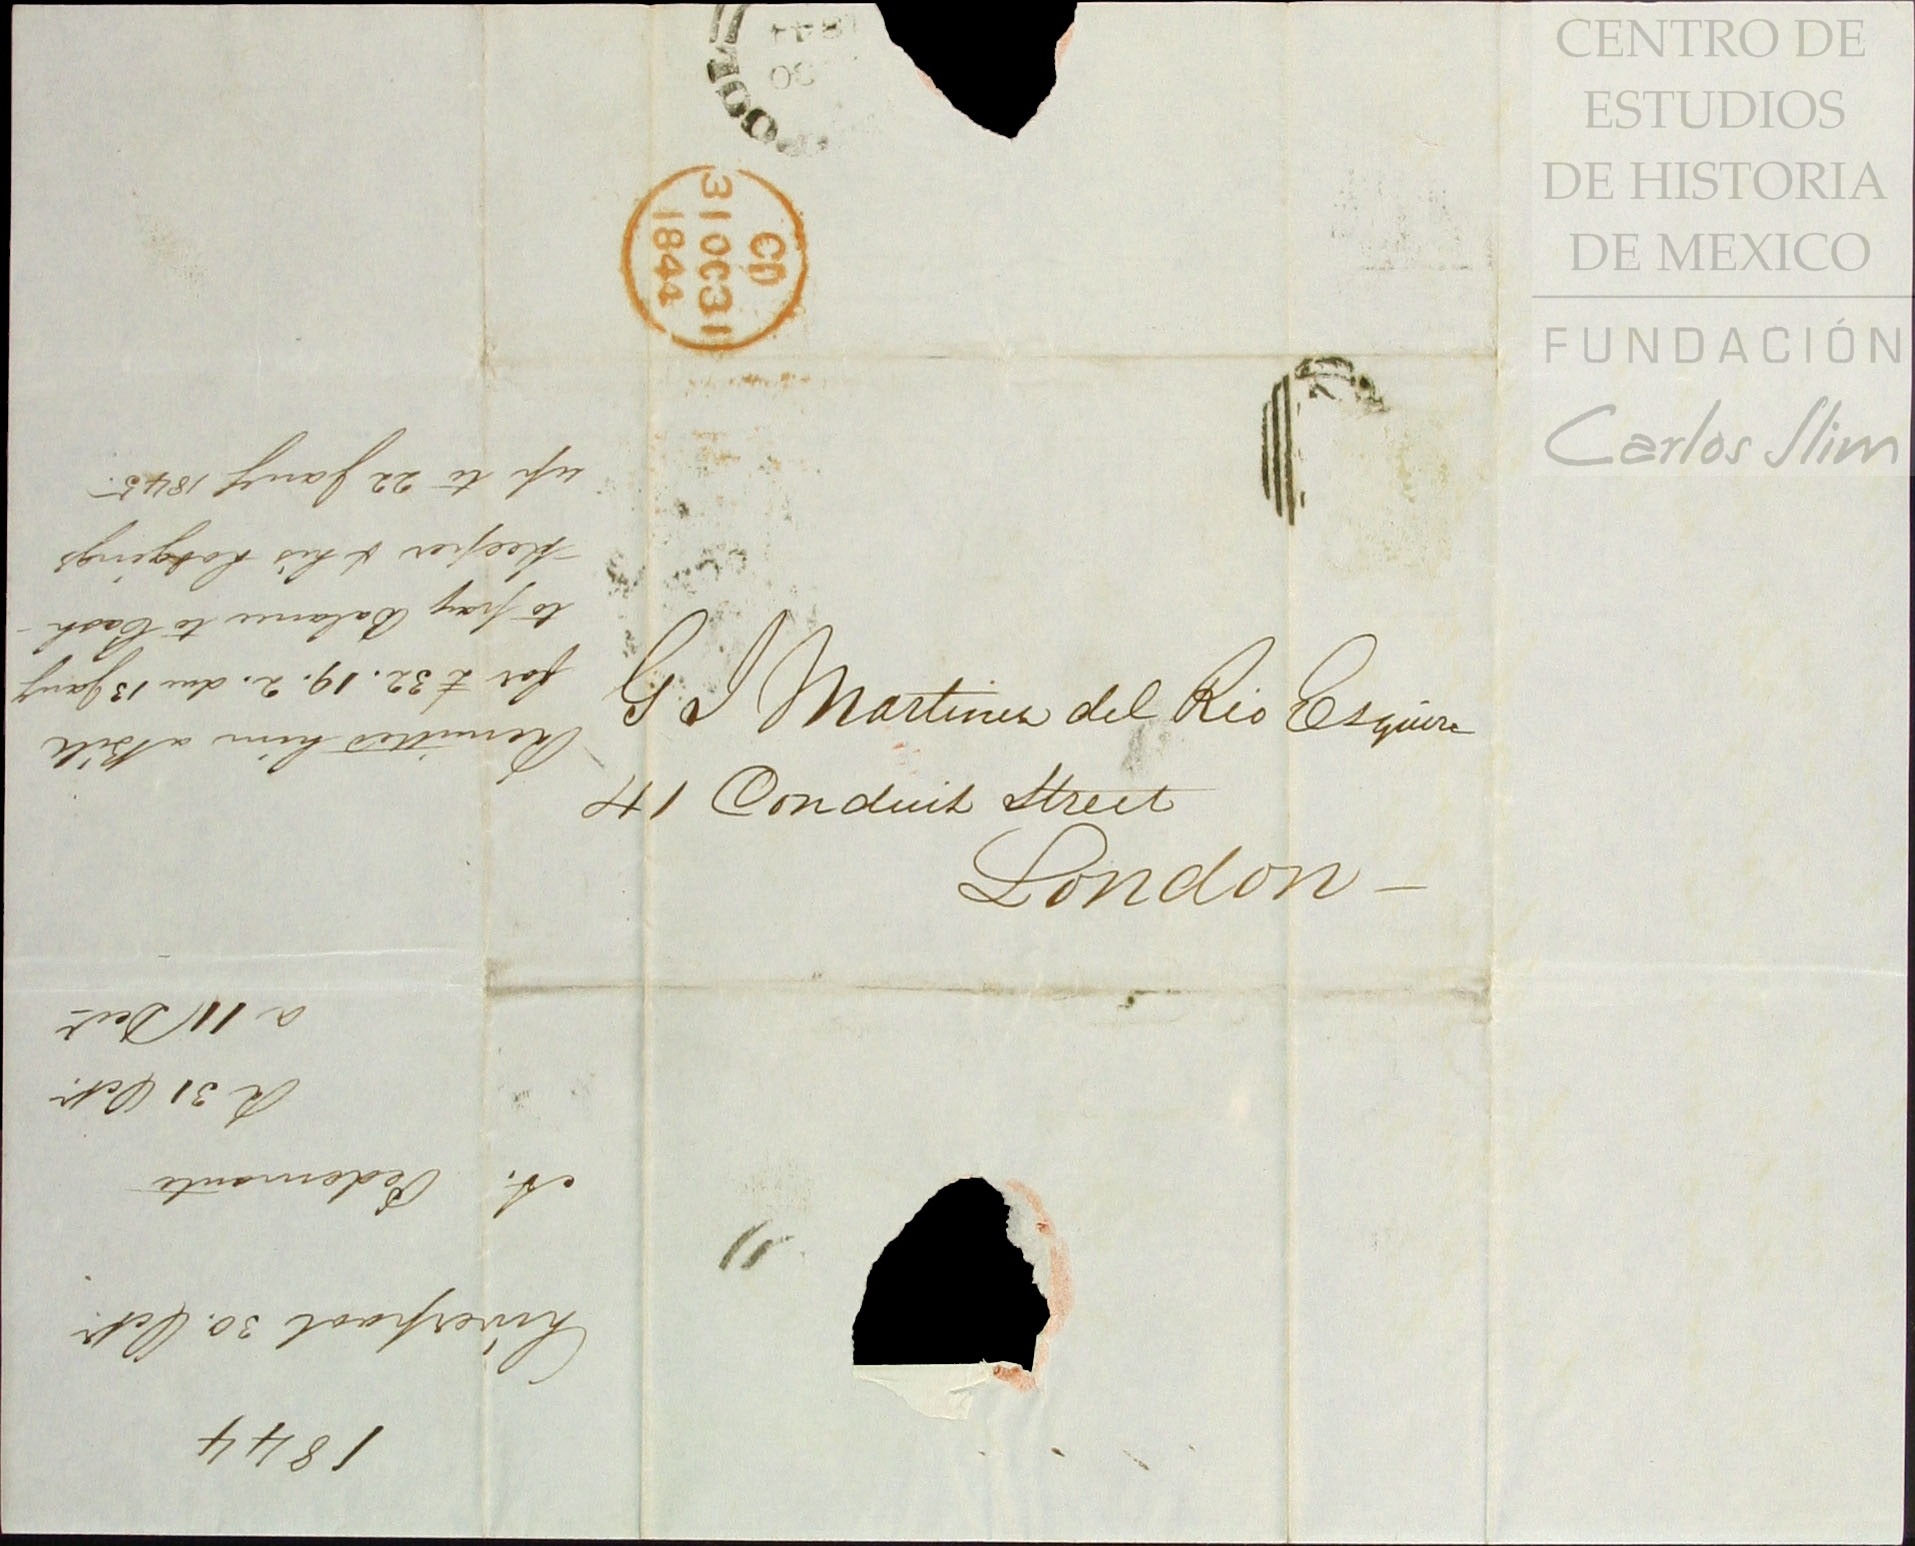 G J Martinez del Rio Esquire
41 Conduit Street
London -
1844
Liverpool 30. Octr.
A. Pedemonte
R 31 Octr.
a 11 Decr
Remitted him a Bill
for £32.19.2. due 13 Jany
to pay Balance to Cash-
keeper & his Lodgings
up to 22 Jany 1845.
CD
31 OC 31
1844
POOL
30
1844
CENTRO DE
ESTUDIOS
DE HISTORIA
DE MEXICO
FUNDACIÓN
Carlos Slim